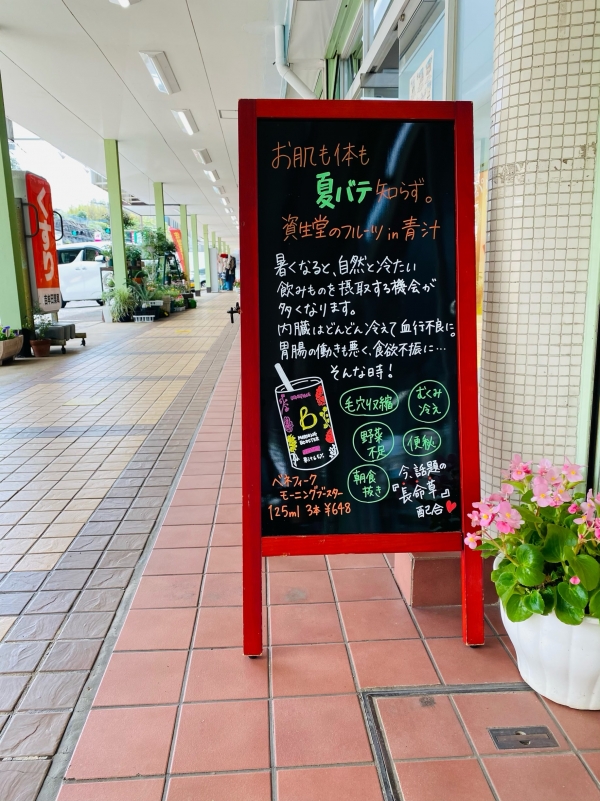 お肌も体も
夏バテ知らず。
資生堂のフルーツin青汁
暑くなると、自然と冷たい
飲みものを摂取する機会が
多くなります。
内臓はどんどん冷えて血行不良に。
胃腸の働きも悪く、食欲不振に…
そんな時!
毛穴収縮
むくみ
冷え
野菜
不足
便秘
朝食
抜き
B
MORNING
BOOSTER
ベネフィーク
モーニングブースター
125ml 3本 ¥648
今、話題の
『長命草』
配合
くすり